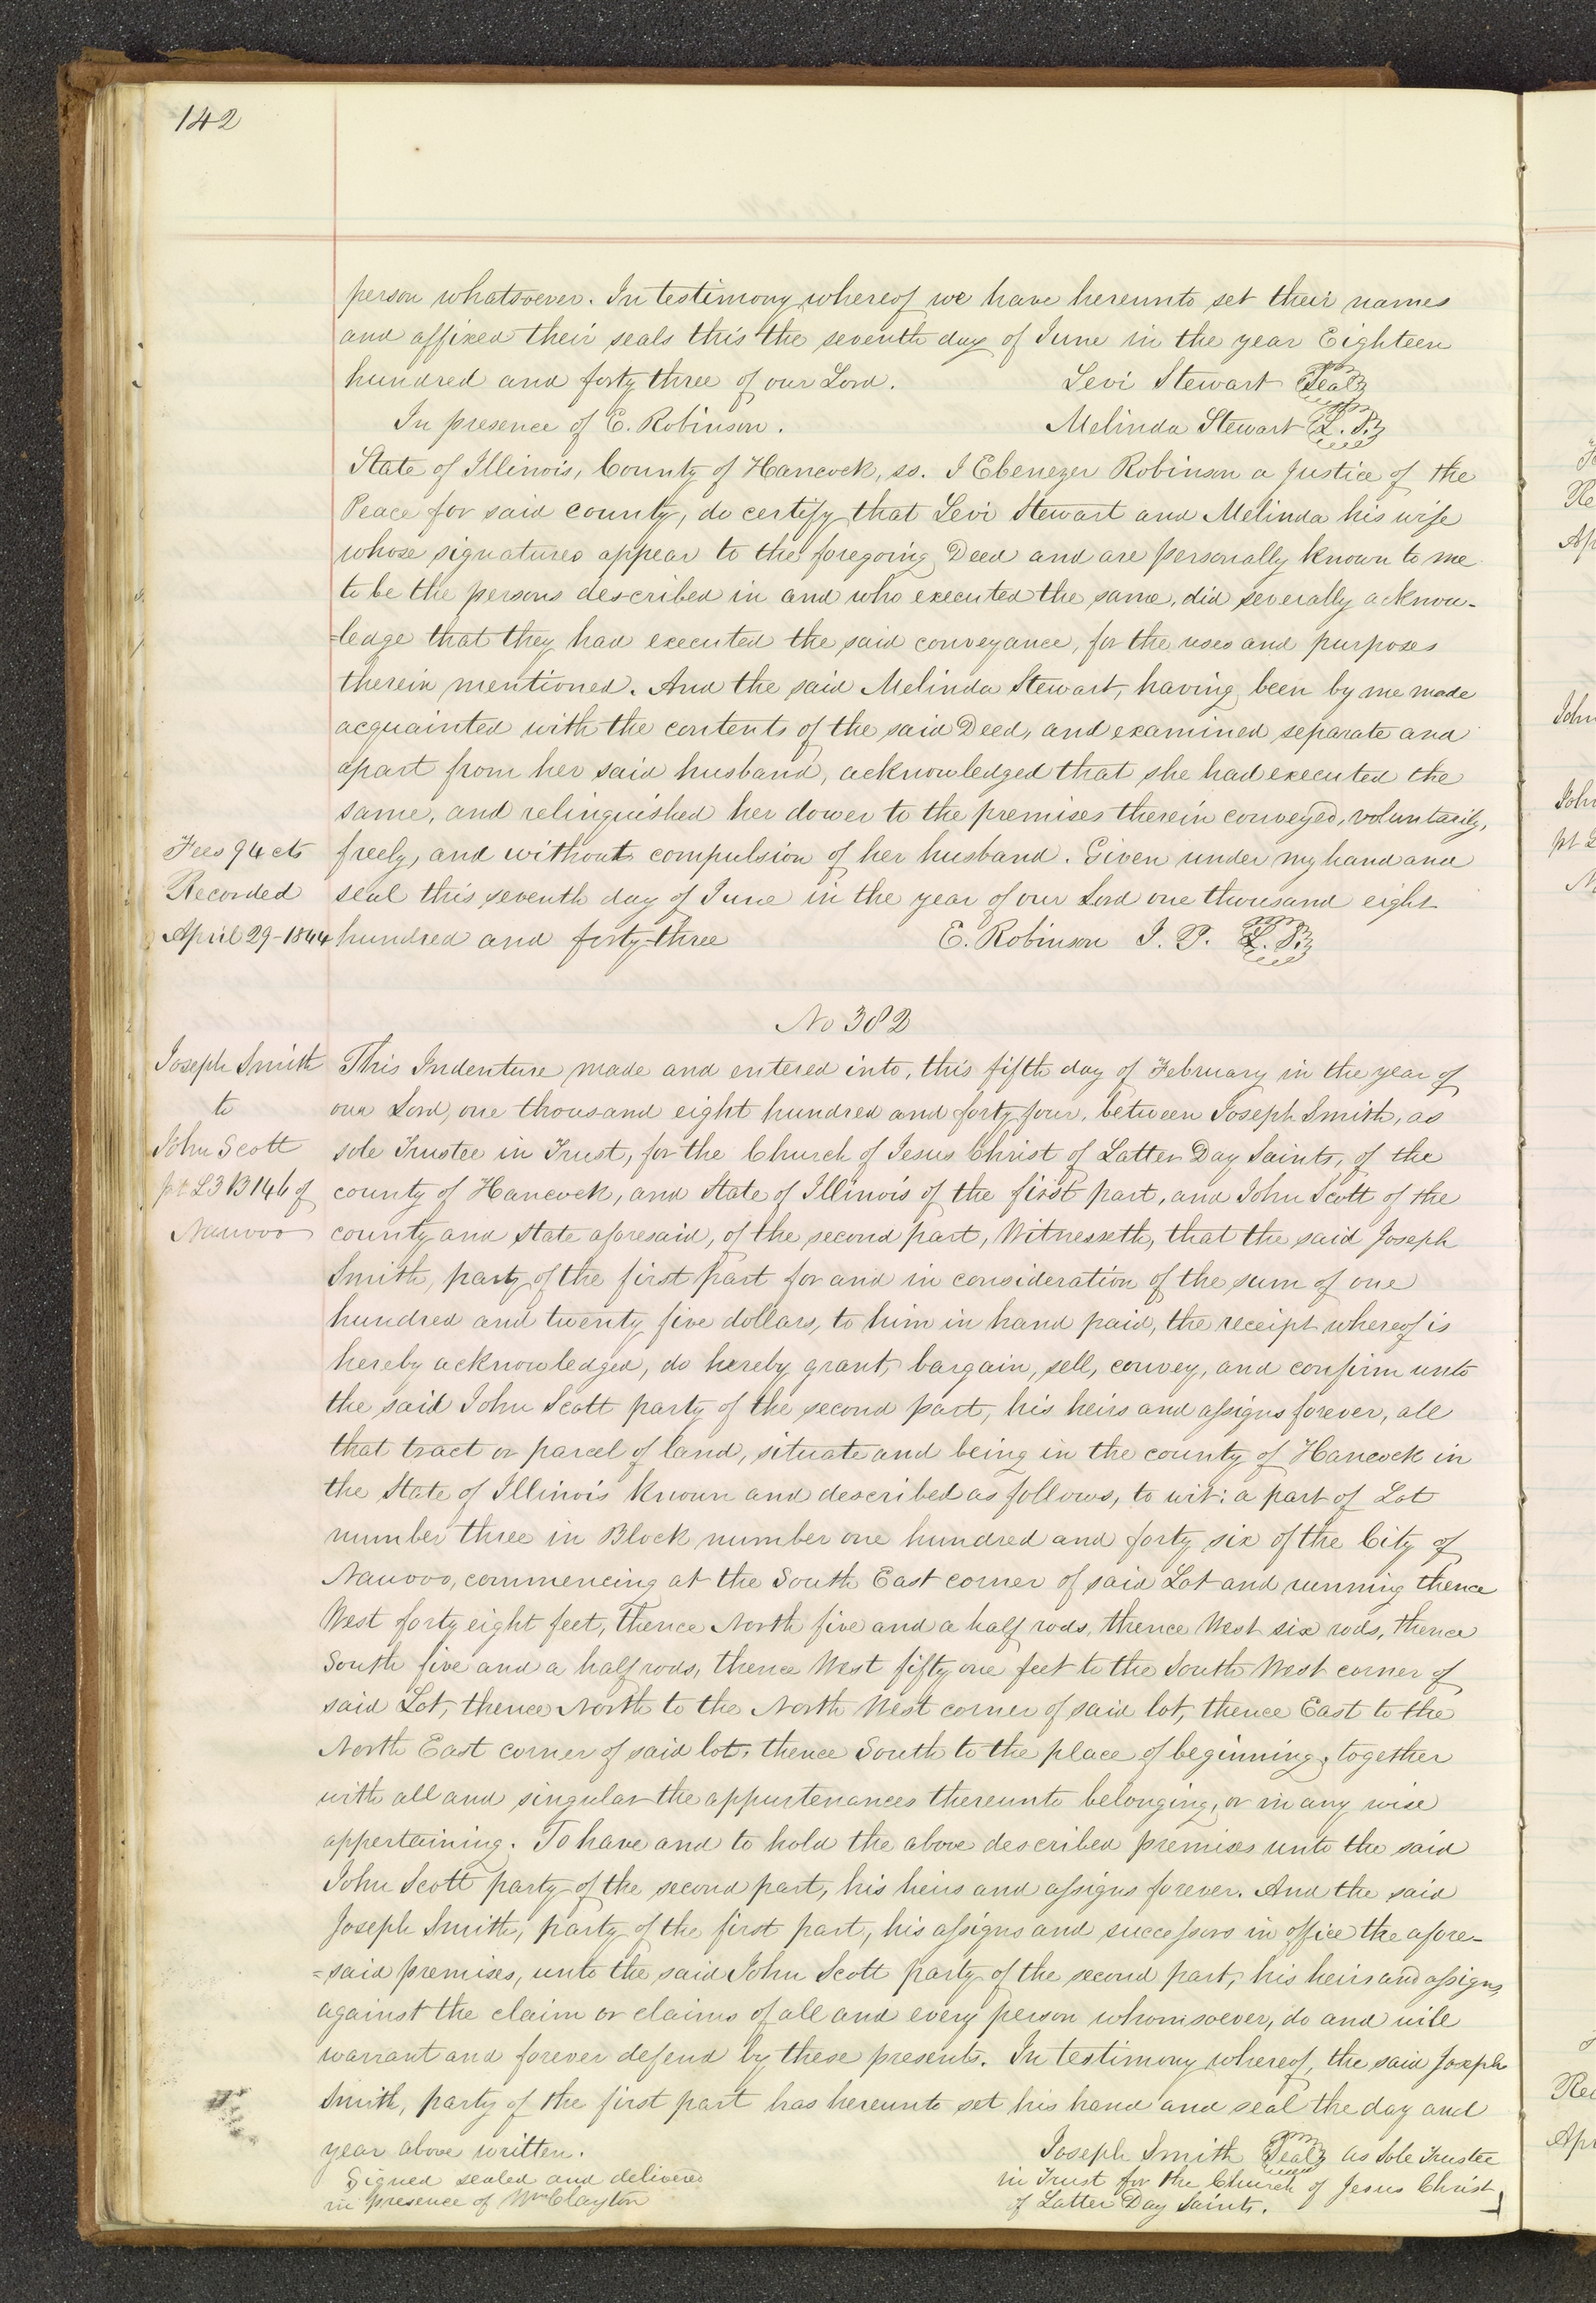 142
person whatsoever. In testimony whereof we have hereunto set their names
and affixed their seals this the seventh day of June in the year Eighteen
hundred and forty three of our Lord. Levi Stewart Seal
In presence of E. Robinson. Melinda Stewart L. S.
State of Illinois, County of Hancock, ss. I Ebenezer Robinson a Justice of the
Peace for said county, do certify that Levi Stewart and Melinda his wife
whose signatures appear to the foregoing Deed and are personally known to me
to be the persons described in and who executed the same, did severally acknow-
=ledge that they had executed the said conveyance, for the uses and purposes
therein mentioned. And the said Melinda Stewart, having been by me made
acquainted with the contents of the said Deed, and examined separate and
apart from her said husband, acknowledged that she had executed the
same, and relinquished her dower to the premises therein conveyed, voluntarily,
Fees 94 cts freely, and without compulsion of her husband. Given under my hand and
Recorded seal this seventh day of June in the year of our Lord one thousand eight
April 29-1844 hundred and forty-three E. Robinson J. P. L. S.
No 382
Joseph Smith This Indenture made and entered into, this fifth day of February in the year of
to our Lord, one thousand eight hundred and forty four, between Joseph Smith, as
John Scott sole Trustee in Trust, for the Church of Jesus Christ of Latter Day Saints, of the
pt L3 B146 of county of Hancock, and State of Illinois of the first part, and John Scott of the
Nauvoo county and state aforesaid, of the second part, Witnesseth, that the said Joseph
Smith, party of the first part for and in consideration of the sum of one
hundred and twenty five dollars, to him in hand paid, the receipt whereof is
hereby acknowledged, do hereby grant, bargain, sell, convey, and confirm unto
the said John Scott party of the second part, his heirs and assigns forever, all
that tract or parcel of land, situate and being in the county of Hancock in
the State of Illinois known and described as follows, to wit: a part of Lot
number three in Block number one hundred and forty six of the City of
Nauvoo, commencing at the South East corner of said Lot and running thence
West forty eight feet, thence North five and a half rods, thence West six rods, thence
South five and a half rods, thence West fifty one feet to the South West corner of
said Lot, thence North to the North West corner of said lot, thence East to the
North East corner of said lot, thence South to the place of beginning, together
with all and singular the appurtenances thereunto belonging, or in any wise
appertaining. To have and to hold the above described premises unto the said
John Scott party of the second part, his heirs and assigns forever. And the said
Joseph Smith, party of the first part, his assigns and successors in office the afore-
=said premises, unto the said John Scott party of the second part, his heirs and assigns,
against the claim or claims of all and every person whomsoever, do and will
warrant and forever defend by these presents. In testimony whereof, the said Joseph
Smith, party of the first part has hereunto set his hand and seal the day and
year above written. Joseph Smith Seal as Sole Trustee
Signed sealed and delivered in Trust for the Church of Jesus Christ
in presence of Wm Clayton of Latter Day Saints.